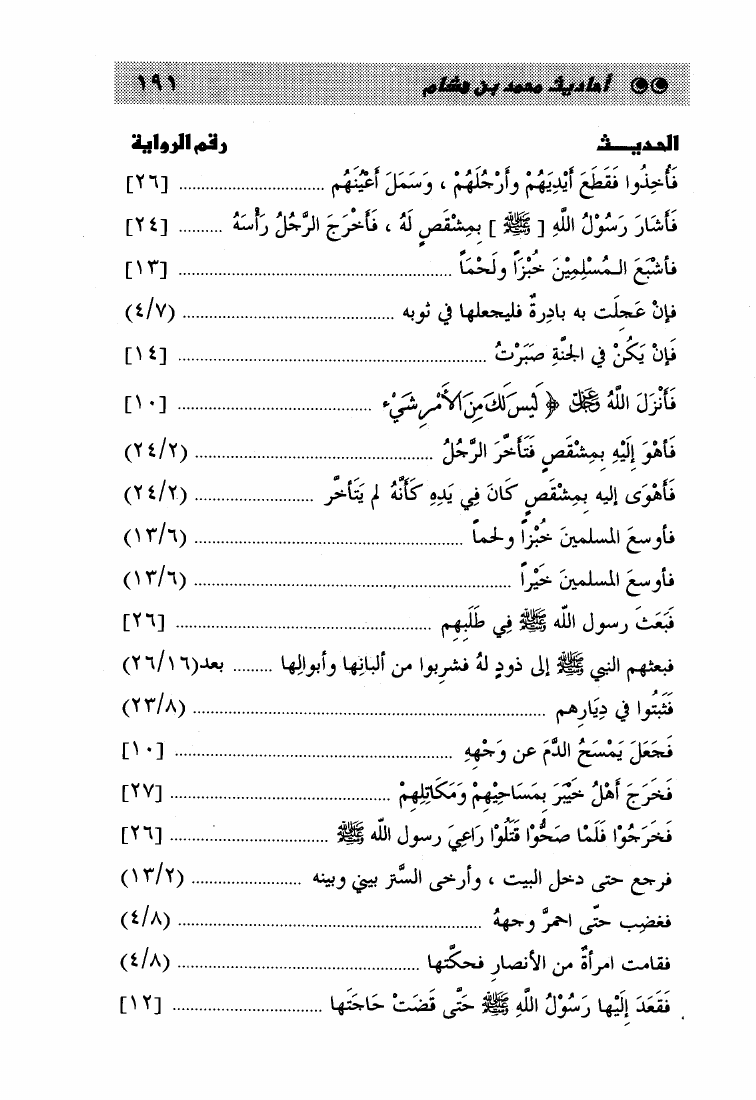 أحاديث محمد بن هشام ١٩١
الحديـــث رقم الرواية
فَأُخِذُوا فَقَطَعَ أَيْدِيَهُمْ وأَرْجُلَهُمْ ، وَسَمَلَ أَعْيُنَهُم ................................ [٢٦]
فَأَشَارَ رَسُوْلُ اللَّهِ [ ﷺ ] بِمِشْقَصٍ لَهُ ، فَأَخْرَجَ الرَّجُلُ رَأْسَهُ .......... [٢٤]
فأَشْبَعَ الـمُسْلِمِيْنَ خُبْزَاً ولَحْمَاً ................................ [١٣]
فإنْ عَجِلَت به بادِرةٌ فليجعلها في ثوبه ................................ (٤/٧)
فَإِنْ يَكُنْ في الجَنَّةِ صَبَرْتُ ................................ [١٤]
فَأَنْزَلَ اللَّهُ ﷿ ﴿ لَيْسَ لَكَ مِنَ الأَمْرِ شَيْء ................................ [١٠]
فَأَهْوَ إِلَيْهِ بِمِشْقَصٍ فَتَأَخَّرَ الرَّجُلُ ................................ (٢٤/٢)
فَأَهْوَى إليه بِمِشْقَصٍ كَانَ فِي يَدِهِ كَأَنَّهُ لم يَتَأخَّر ................................ (٢٤/٢)
فأوسعَ المسلمينَ خُبْزاً ولحماً ................................ (١٣/٦)
فأوسعَ المسلمينَ خَيْراً ................................ (١٣/٦)
فَبَعَثَ رسول اللّه ﷺ فِي طَلَبِهِم ................................ [٢٦]
فبعثهم النبي ﷺ إلى ذودٍ لهُ فشرِبوا من ألبانِها وأبوالِها ......... بعد(٢٦/١٦)
فَثَبَتُوا في دِيَارِهم ................................ (٢٣/٨)
فَجَعَلَ يَمْسَحُ الدَّمَ عن وَجْهِهِ ................................ [١٠]
فَخَرَجَ أَهْلُ خَيْبَرَ بِمَسَاحِيْهِمْ وَمَكَاتِلِهِمْ ................................ [٢٧]
فَخَرَجُوْا فَلَمَّا صَحُّوْا قَتَلُوْا رَاعِيَ رسول اللّه ﷺ ................................ [٢٦]
فرجع حتى دخل البيت ، وأرخى السَّتر بيني وبينه ......................... (١٣/٢)
فغضِب حتّى احمرَّ وجههُ ................................ (٤/٨)
فقامت امرأةٌ من الأنصارِ فحكَّتها ................................ (٤/٨)
فَقَعَدَ إِلَيْها رَسُوْلُ اللَّهِ ﷺ حَتَّى قَضَتْ حَاجَتَها ................................ [١٢]